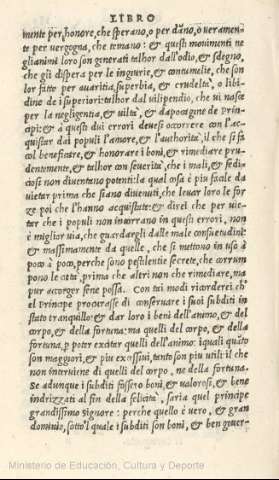 LIBRO
mente per honore, che sperano, o per dāno, o ueramen-
te per uergogna, che temano: & questi mouimenti ne
gli animi loro son generati talhor dall'odio, & sdegno,
che gli dispera per le ingiurie, & contumelie, che son
lor fatte per auaritia, superbia, & crudeltà, o libi-
dine de i superiori: talhor dal uilipendio, che ui nasce
per la negligentia, & uiltà, & dapocagine de Prin-
cipi: & a questi dui errori deuesi occorrere con l'ac-
quistar dai populi l'amore, & l'authorità, il che si fa
col beneficare, & honorare i boni, & rimediare pru-
dentemente, & talhor con seuerità, che i mali, & sedi-
ciosi non diuentano potenti: la qual cosa è piu facile da
uietar prima che siano diuenuti, che leuar loro le for
ze poi che l'hanno acquistate: & direi che per uie-
tar che i populi non incorrano in questi errori, non
è miglior uia, che guardargli dalle male consuetudini:
& massimamente da quelle, che si mettono in uso à
poco à poco, perche sono pestilentie secrete, che corrum
pono le città, prima che altri non che rimediare, ma
pur accorger sene possa. Con tai modi ricorderei ch'
el principe procurasse di conseruare i suoi subditi in
stato tranquillo: & dar loro i beni dell'animo, & del
corpo, & della fortuna: ma quelli del corpo, & della
fortuna, p poter exercitar quelli dell'animo: iquali quāto
son maggiori, & piu excessiui, tanto son piu utili: il che
non interuiene di quelli del corpo, ne della fortuna.
Se adunque i subditi fossero boni, & ualorosi, & bene
indrizzati al fin della felicità, saria quel principe
grandissimo signore: perche quello è uero, & gran
dominio, sotto'l quale i subditi son boni, & ben gouer-
Ministerio de Educación, Cultura y Deporte